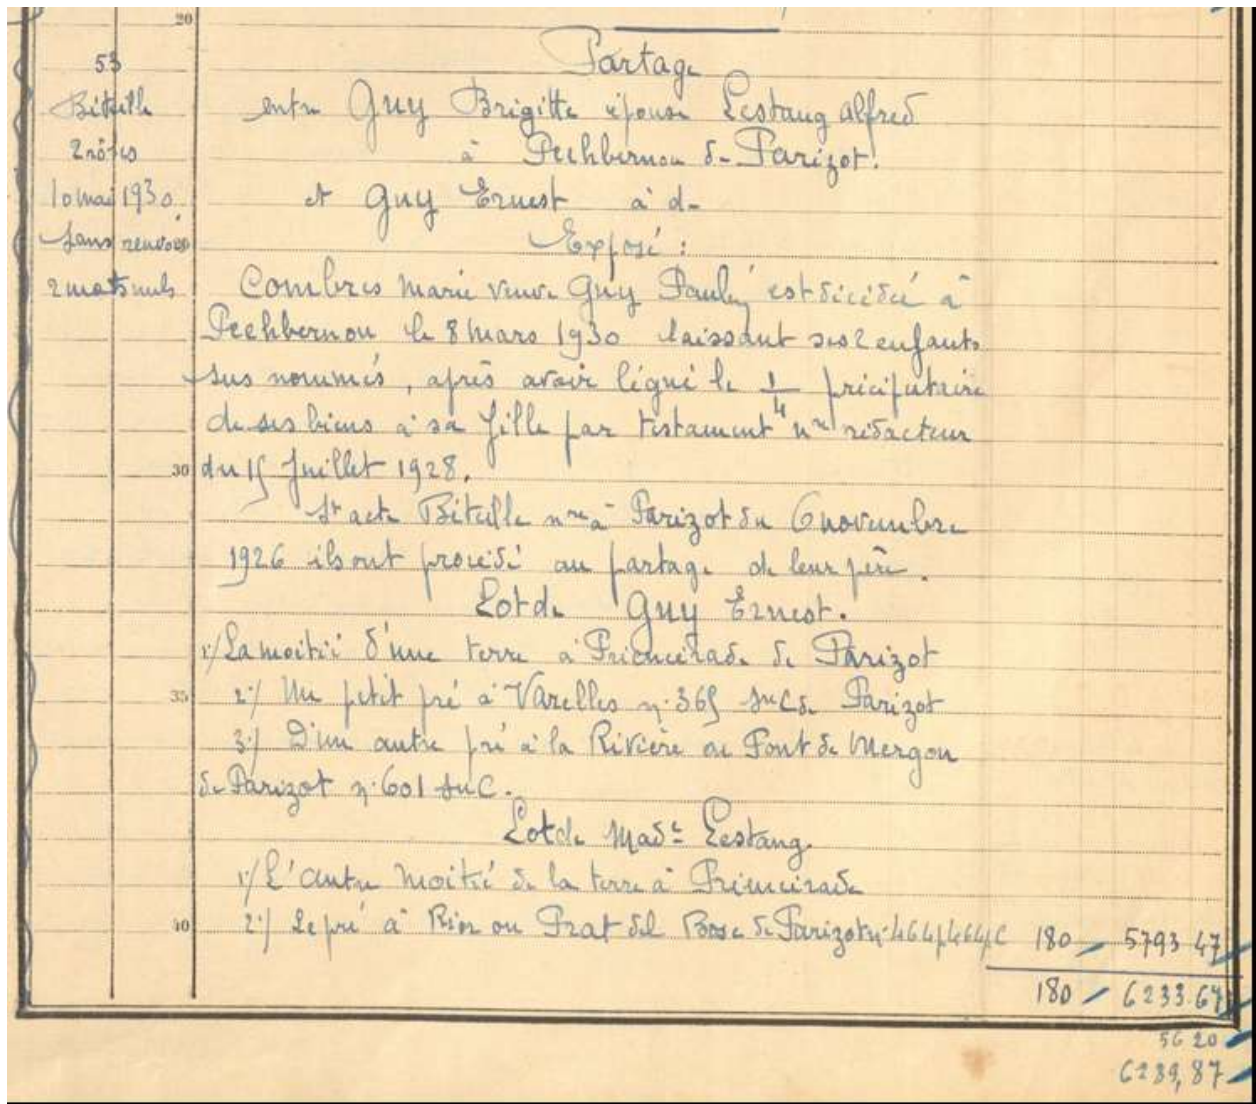 20
Partage
53
Bitulle
entre Guy Brigitte épouse Lestang Alfred
2 rôles
à Pechbernou de Parizot.
10 mai 1930
et Guy Ernest à d-
sans renvois
Exposé :
2 mots nuls
Combres Marie veuve Guy Paulin est décédée à
Pechbernou le 8 mars 1930 laissant ses 2 enfants
sus nommés, après avoir légué le 1/4 préciputaire
de ses biens à sa fille par testament nre rédacteur
30
du 15 Juillet 1928.
St acte Bitulle nre à Parizot du 6 novembre
1926 ils ont procédé au partage de leur père.
Lot de Guy Ernest.
1:/ La moitié d'une terre à Primeirade de Parizot
35
2:/ Un petit pré à Varelles n: 365 son C de Parizot
3:/ D'un autre pré à la Rivière ou Font de Mergou
de Parizot n: 601 son C.
Lot de Made Lestang.
1:/ L'autre moitié de la terre à Primeirade
40
2:/ Le pré à Rion ou Prat del Bosc de Parizot n: 464, 464p C 180 5793 47
180 6233.67
56 20
6289,87